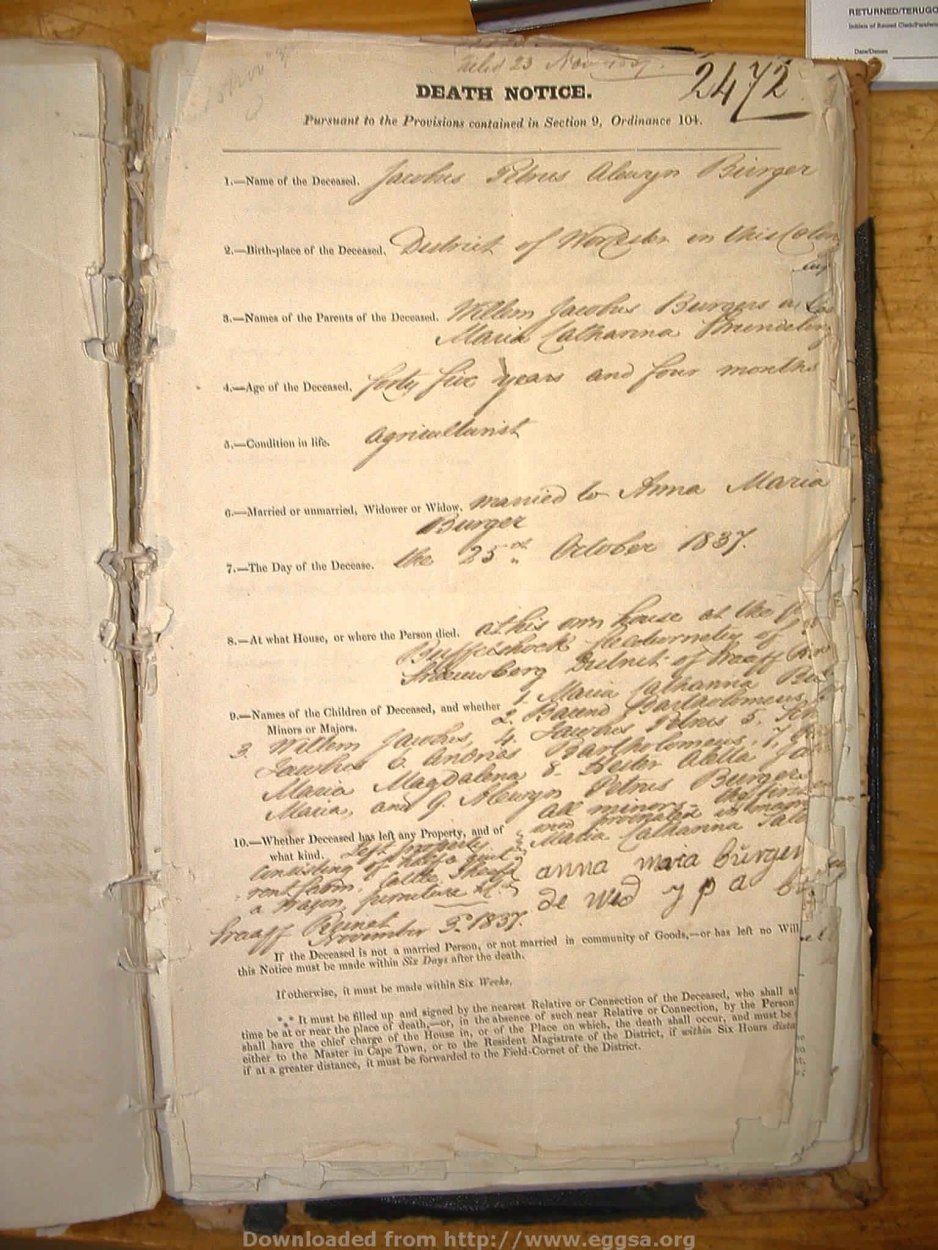 RETURNED/TERUGG
Date/Datum
filed 23 Nov 1837.
2472
DEATH NOTICE.
Pursuant to the Provisions contained in Section 9, Ordinance 104.
1.—Name of the Deceased. Jacobus Petrus Alewyn Burger
2.—Birth-place of the Deceased. District of Worcester in this Colony
3.—Names of the Parents of the Deceased. Willem Jacobus Burgers and
Maria Catharina
4.—Age of the Deceased. forty five years and four months
5.—Condition in life. Agriculturist
6.—Married or unmarried, Widower or Widow. married to Anna Maria
Burger
7.—The Day of the Decease. the 25th October 1837.
8.—At what House, or where the Person died. at his own house at the
Buffelshoek Fieldcornetcy of
Sneeuwberg District of Graaff
9.—Names of the Children of Deceased, and whether 1 Maria Catharina
Minors or Majors. 2. Barend Bartholomeus
3. Willem Jacobus, 4. Jacobus Petrus 5.
Jacobus 6. Andries Bartholomeus, 7,
Maria Magdalena 8. Hester Aletta
Maria, and 9 Alewyn Petrus Burger
all minors
10.—Whether Deceased has left any Property, and of
what kind. Left property Maria Catharina
Consisting of
Cattle Sheep anna maria burger
a Wagon, furniture &c de wed y p a
Graaff Reinet
November 3d 1837.
If the Deceased is not a married Person, or not married in community of Goods,—or has left no Will
this Notice must be made within Six Days after the death.
If otherwise, it must be made within Six Weeks,
*** It must be filled up and signed by the nearest Relative or Connection of the Deceased, who shall at
time be at or near the place of death,—or, in the absence of such near Relative or Connection, by the Person
shall have the chief charge of the House in, or of the Place on which, the death shall occur, and must be
either to the Master in Cape Town, or to the Resident Magistrate of the District, if within Six Hours dista
if at a greater distance, it must be forwarded to the Field-Cornet of the District.
Downloaded from http://www.eggsa.org